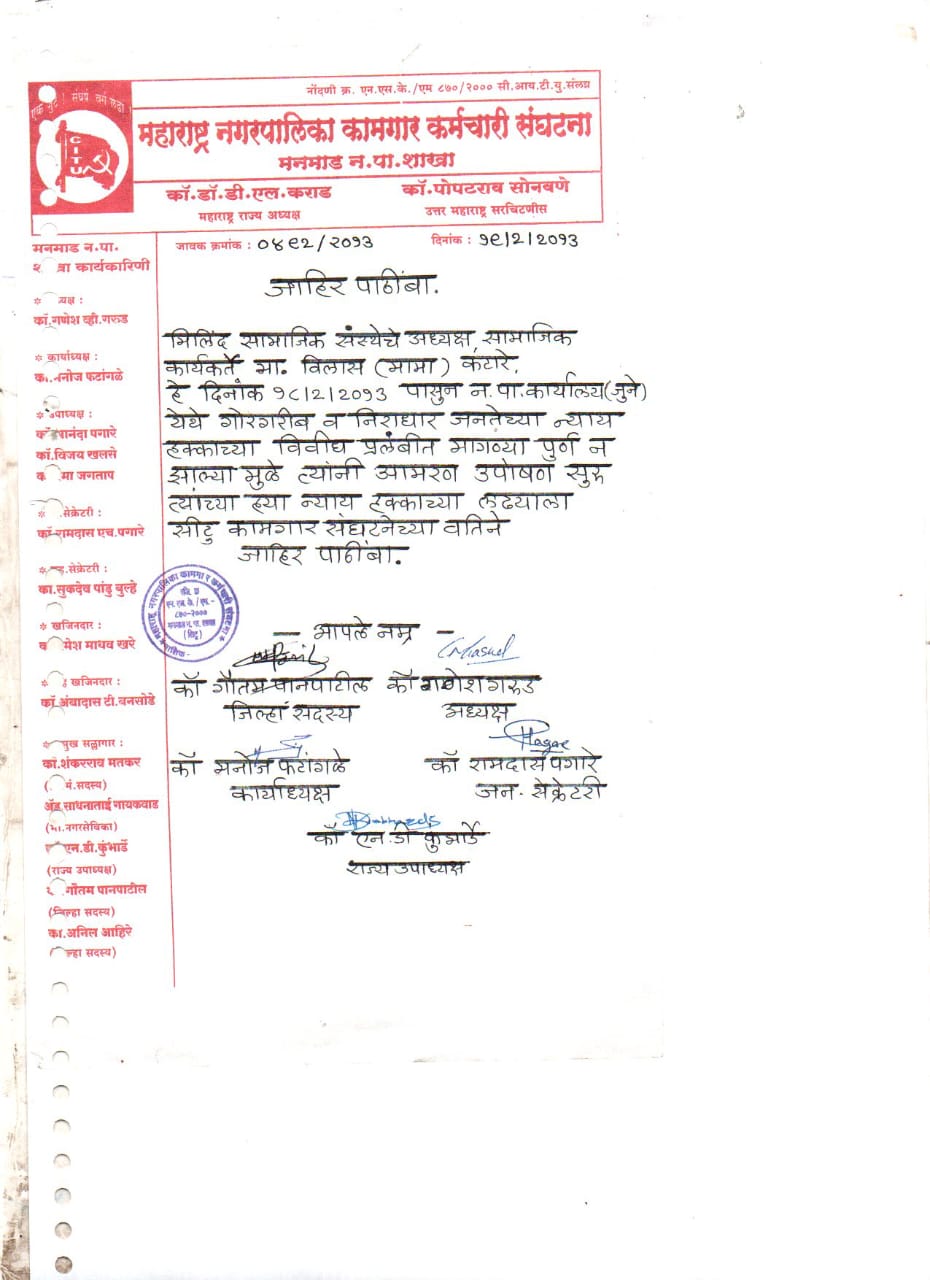 नोंदणी क्र. एन.एस.के./एम ८७०/२००० सी.आय.टी.यु.संलग्न
CITU
महाराष्ट्र नगरपालिका कामगार कर्मचारी संघटना
मनमाड न.पा.शाखा
कॉ.डॉ.डी.एल.कराड
महाराष्ट्र राज्य अध्यक्ष
कॉ.पोपटराव सोनबणे
उत्तर महाराष्ट्र सरचिटणीस
जावक क्रमांक : ०४१२/२०१३
दिनांक : १९/2/२०१३
मनमाड न.पा.
कार्यकारिणी
कॉ.गणेश व्ही.गरुड
* कार्याध्यक्ष :
का.मनोज फटांगळे
उपाध्यक्ष :
पगारे
कॉ.विजय खलसे
जगताप
सेक्रेटरी :
कॉ.रामदास एच.पगारे
सेक्रेटरी :
का.सुकदेव पांडु बुल्हे
* खजिनदार :
माधव खरे
खजिनदार :
कॉ.अंबादास टी.बनसोडे
सल्लागार :
का.शंकरराव मतकर
अॅड साधनाताई गायकवाड
एन.डी.कुंभार्डे
(राज्य उपाध्यक्ष)
गौतम पानपाटील
(जिल्हा सदस्य)
का.अनिल आहिरे
सदस्य)
जाहिर पाठींबा.
मिलिंद सामाजिक संस्थेचे अध्यक्ष, सामाजिक
कार्यकर्ते मा. विलास (मामा) कटारे,
हे दिनांक १८/2/२०१३ पासुन न.पा.कार्यालय(जुने)
येथे गोरगरीब व निराधार जनतेच्या न्याय
हक्काच्या विवीध प्रलंबीत मागण्या पुर्ण न
झाल्या मुळे त्यांनी आमरण उपोषण सुरु
त्यांच्या ह्या न्याय हक्काच्या लढयाला
सीटु कामगार संघटनेच्या वतिने
जाहिर पाठींबा.
— आपले नम्र —
कॉ गौतम पानपाटील
जिल्हा सदस्य
कॉ गणेश गरुड
अध्यक्ष
कॉ मनोज फटांगळे
कार्याध्यक्ष
कॉ रामदास पगारे
जन. सेक्रेटरी
कॉ एन.डी कुंभार्डे
राज्य उपाध्यक्ष